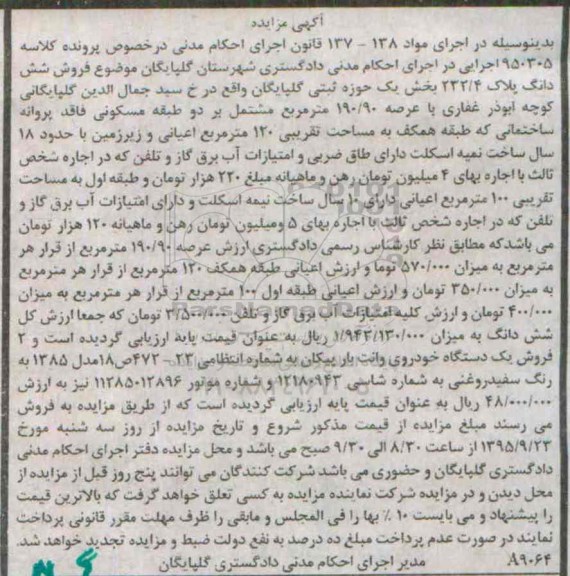 آگهی مزایده
بدینوسیله در اجرای مواد ۱۳۸ - ۱۳۷ قانون اجرای احکام مدنی درخصوص پرونده کلاسه
۹۵۰۳۰۵ اجرایی در اجرای احکام مدنی دادگستری شهرستان گلپایگان موضوع فروش شش
دانگ پلاک ۲۳۲/۴ بخش یک حوزه ثبتی گلپایگان واقع در خ سید جمال الدین گلپایگانی
کوچه ابوذر غفاری با عرصه ۱۹۰/۹۰ مترمربع مشتمل بر دو طبقه مسکونی فاقد پروانه
ساختمانی که طبقه همکف به مساحت تقریبی ۱۲۰ مترمربع اعیانی و زیرزمین با حدود ۱۸
سال ساخت نمیه اسکلت دارای طاق ضربی و امتیازات آب برق گاز و تلفن که در اجاره شخص
ثالث با اجاره بهای ۴ میلیون تومان رهن و ماهیانه مبلغ ۲۲۰ هزار تومان و طبقه اول به مساحت
تقریبی ۱۰۰ مترمربع اعیانی دارای ۱۰ سال ساخت نیمه اسکلت و دارای امتیازات آب برق گاز و
تلفن که در اجاره شخص ثالث با اجاره بهای ۵ ومیلیون تومان رهن و ماهیانه ۱۲۰ هزار تومان
می باشدکه مطابق نظر کارشناس رسمی دادگستری ارزش عرصه ۱۹۰/۹۰ مترمربع از قرار هر
مترمربع به میزان ۵۷۰/۰۰۰ توما و ارزش اعیانی طبقه همکف ۱۲۰ مترمربع از قرار هر مترمربع
به میزان ۳۵۰/۰۰۰ تومان و ارزش اعیانی طبقه اول ۱۰۰ مترمربع از قرار هر مترمربع به میزان
۴۰۰/۰۰۰ تومان و ارزش کلیه امتیازات آب برق گاز و تلفن ۳/۵۰۰/۰۰۰ تومان که جمعا ارزش کل
شش دانگ به میزان ۱/۹۴۳/۱۳۰/۰۰۰ ریال به عنوان قیمت پایه ارزیابی گردیده است و ۲
فروش یک دستگاه خودروی وانت بار پیکان به شماره انتظامی ۲۳ - ۴۷۲ص۱۸مدل ۱۳۸۵ به
رنگ سفیدروغنی به شماره شاسی ۱۲۱۸۰۹۴۳ و شماره موتور ۱۱۲۸۵۰۱۲۸۹۶ نیز به ارزش
۴۸/۰۰۰/۰۰۰ ریال به عنوان قیمت پایه ارزیابی گردیده است که از طریق مزایده به فروش
می رسند مبلغ مزایده از قیمت مذکور شروع و تاریخ مزایده از روز سه شنبه مورخ
۱۳۹۵/۹/۲۳ از ساعت ۸/۳۰ الی ۹/۳۰ صبح می باشد و محل مزایده دفتر اجرای احکام مدنی
دادگستری گلپایگان و حضوری می باشد شرکت کنندگان می توانند پنج روز قبل از مزایده از
محل دیدن و در مزایده شرکت نماینده مزایده به کسی تعلق خواهد گرفت که بالاترین قیمت
را پیشنهاد و می بایست ۱۰ ٪ بها را فی المجلس و مابقی را ظرف مهلت مقرر قانونی پرداخت
نمایند در صورت عدم پرداخت مبلغ ده درصد به نفع دولت ضبط و مزایده تجدید خواهد شد.
A۹۰۶۴ مدیر اجرای احکام مدنی دادگستری گلپایگان